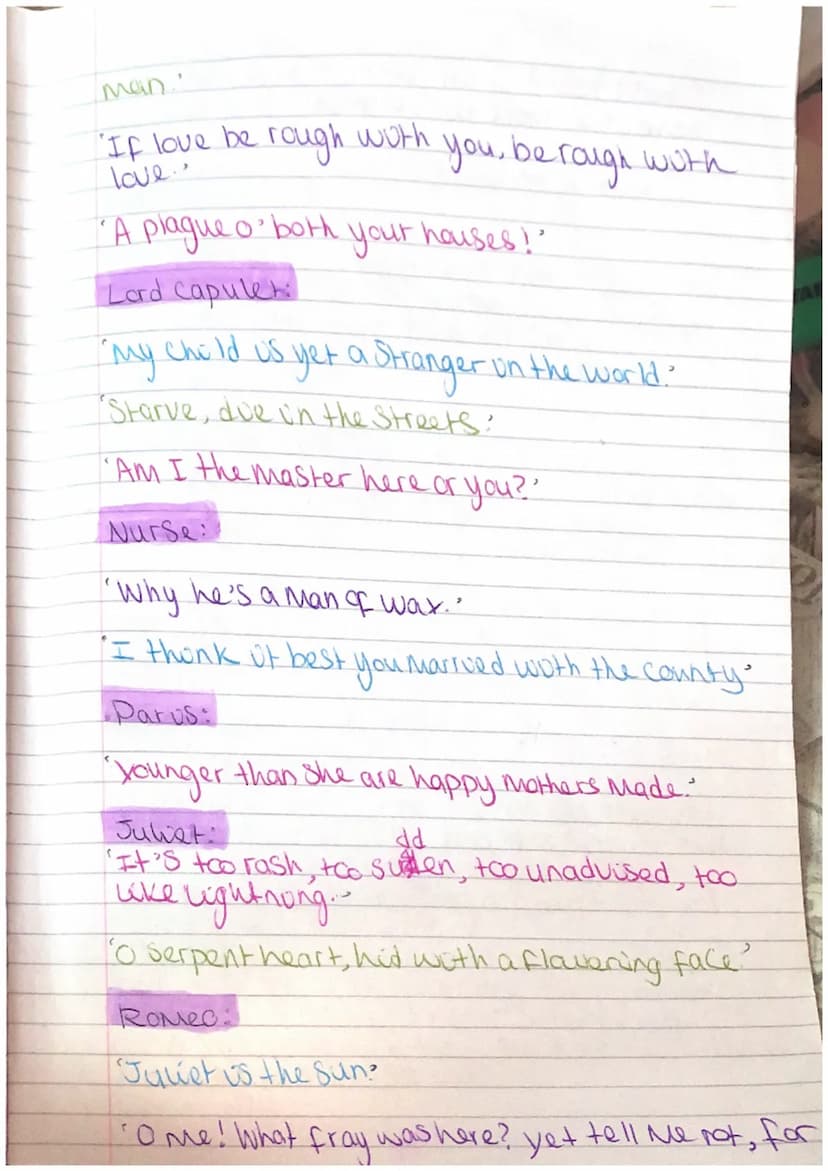 man.'
'If love be rough with you, be rough with
love.'
'A plague o' both your houses!'
Lord Capulet:
'My child is yet a stranger in the world.'
'Starve, die in the streets.'
'Am I the master here or you?'
Nurse:
'Why he's a man of wax.'
'I think it best you married with the county'
Paris:
'younger than she are happy mothers made.'
Juliet:
'It's too rash, too sudden, too unadvised, too
like lightning.'
'O serpent heart, hid with a flowering face'
Romeo:
'Juliet is the sun.'
'O me! What fray was here? yet tell me not, for